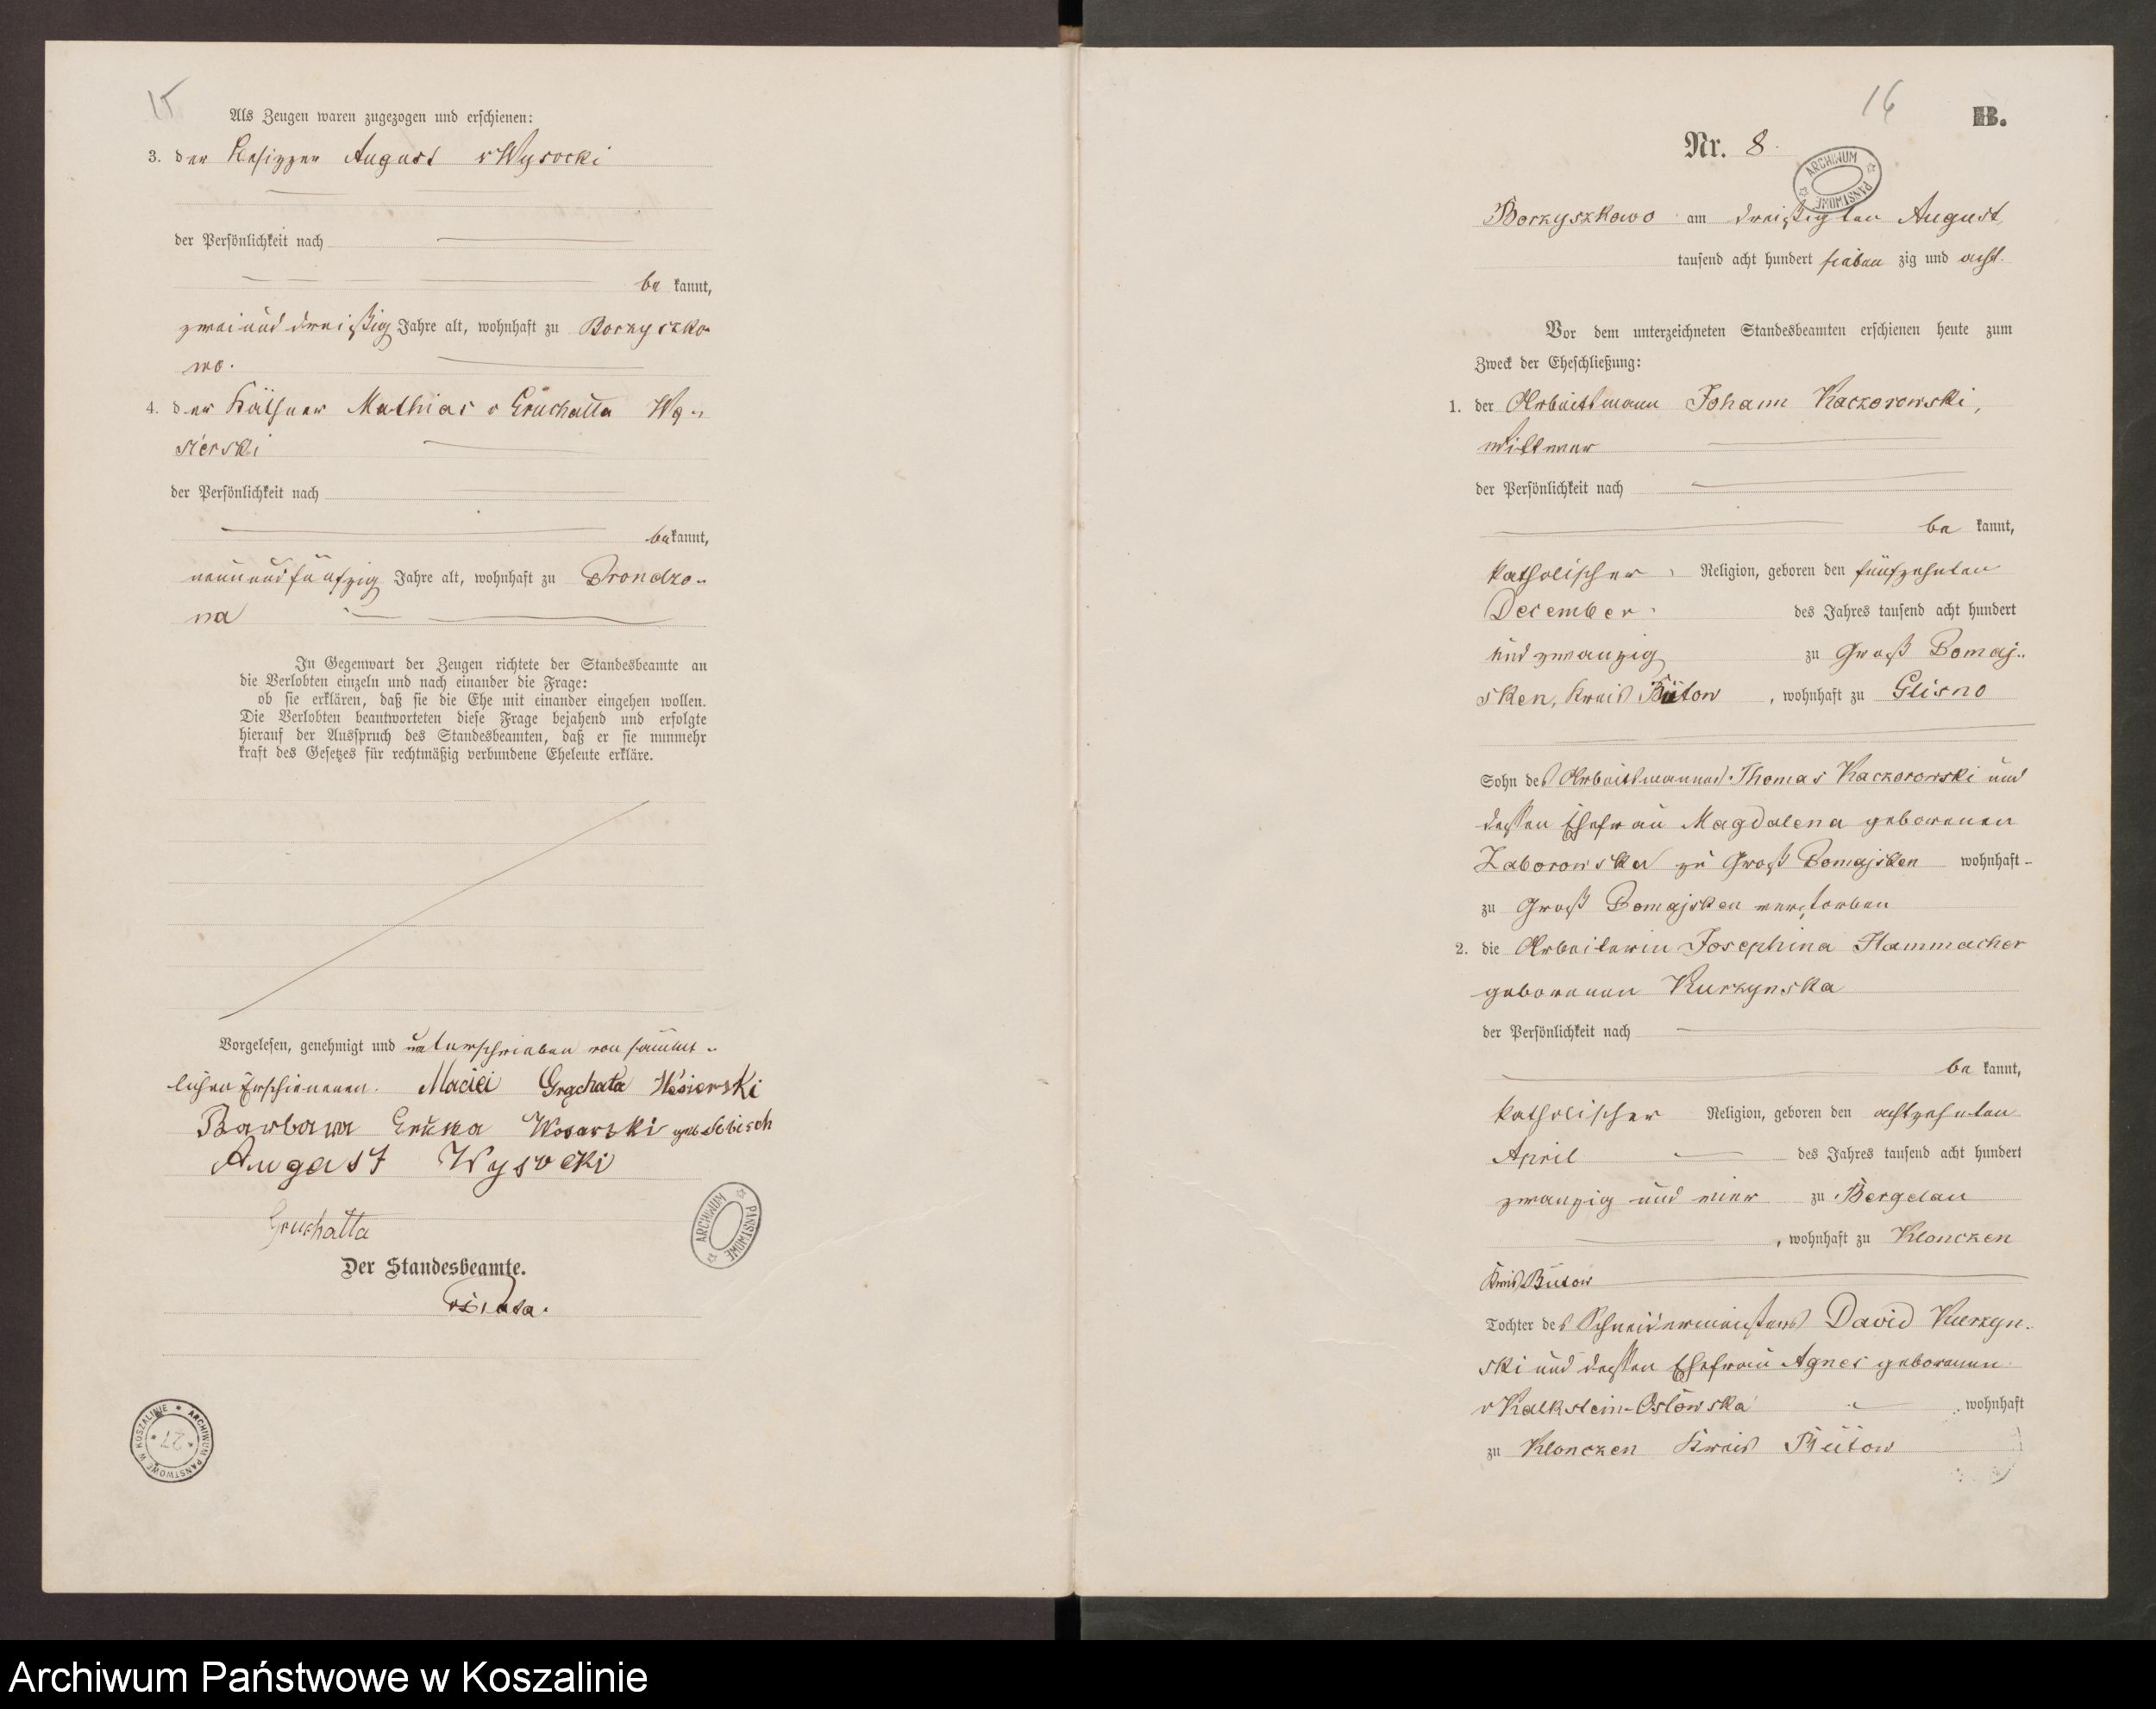 15
Als Zeugen waren zugezogen und erschienen:
3. der Besitzer August v Wysocki
der Persönlichkeit nach
be kannt,
zwei und dreißig Jahre alt, wohnhaft zu Borzyszko-
wo.
4. der Käthner Mathias v Gruchalla Wy-
sierski
der Persönlichkeit nach
be kannt,
neun und fünfzig Jahre alt, wohnhaft zu Prondzo-
na
In Gegenwart der Zeugen richtete der Standesbeamte an
die Verlobten einzeln und nach einander die Frage:
ob sie erklären, daß sie die Ehe mit einander eingehen wollen.
Die Verlobten beantworteten diese Frage bejahend und erfolgte
hierauf der Ausspruch des Standesbeamten, daß er sie nunmehr
kraft des Gesetzes für rechtmäßig verbundene Eheleute erkläre.
Vorgelesen, genehmigt und unterschrieben von sämmt-
lichen Erschienenen. Maciei Grąchała Węsierski
Barbara geb
August Wysocki
Gruchalla
Der Standesbeamte.
ARCHIWUM PAŃSTWOWE
ARCHIWUM PAŃSTWOWE W KOSZALINIE
27
16
B.
Nr. 8.
ARCHIWUM PAŃSTWOWE
Borzyszkowo am dreißigten August
tausend acht hundert sieben zig und acht.
Vor dem unterzeichneten Standesbeamten erschienen heute zum
Zweck der Eheschließung:
1. der Arbeitsmann Johann Kaczorowski,
Wittwer
der Persönlichkeit nach
be kannt,
katholischer Religion, geboren den fünfzehnten
December des Jahres tausend acht hundert
und zwanzig zu Groß Pomej-
sken, Kreis Bütow, wohnhaft zu Glisno
Sohn des Arbeitsmannes Thomas Kaczorowski und
dessen Ehefrau Magdalena geborenen
Zaborowska zu Groß Pomejsken wohnhaft -
zu Groß Pomejsken verstorben
2. die Arbeiterin Josephina Hammacher
geborenen Kurzynska
der Persönlichkeit nach
be kannt,
katholischer Religion, geboren den achtzehnten
April des Jahres tausend acht hundert
zwanzig und vier zu Bergelau
, wohnhaft zu Klonczen
Kreis Bütow
Tochter des Schneidermeisters David Kurzyn-
ski und dessen Ehefrau Agnes geborenen
v Kalkstein-Oslowska wohnhaft
zu Klonczen Kreis Bütow
Archiwum Państwowe w Koszalinie